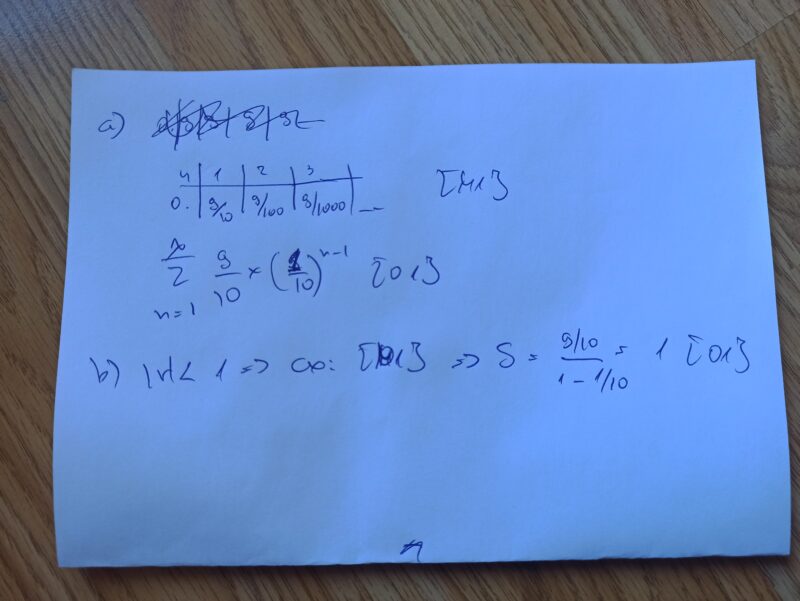 a)
n | 1 | 2 | 3 |
0. | 9/10 | 9/100 | 9/1000 | ... [M1]
∞
Σ 9/10 × (1/10)^n-1 [A1]
n=1
b) |r| < 1 => [A1] => S = 9/10 / 1 - 1/10 = 1 [A1]